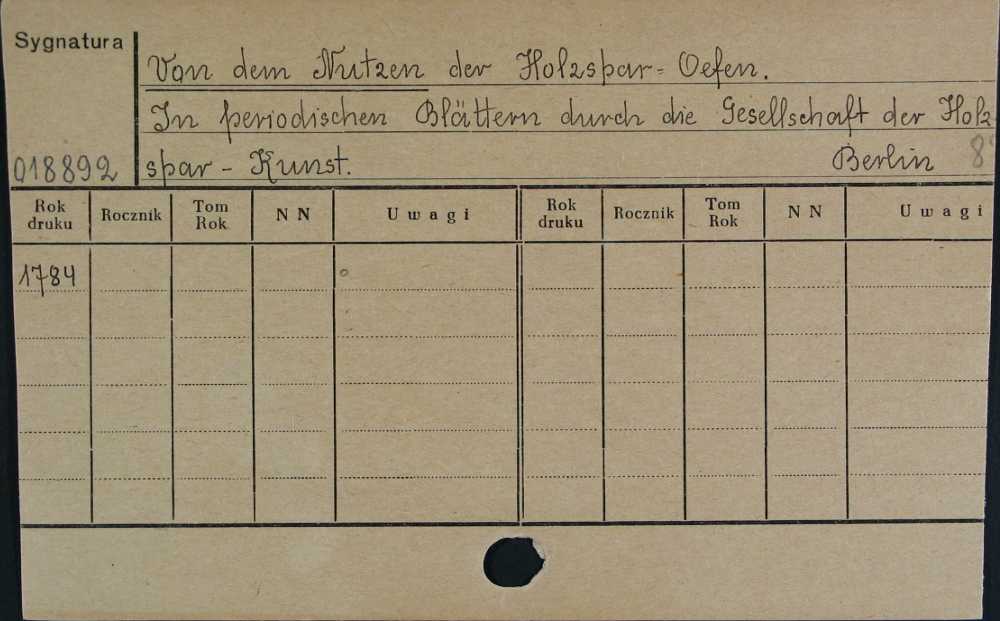 Sygnatura
Von dem Nutzen der Holzspar-Oefen.
In periodischen Blättern durch die Gesellschaft der Holz
018892 spar-Kunst. Berlin 8°
Rok druku Rocznik Tom Rok NN Uwagi Rok druku Rocznik Tom Rok NN Uwagi
1784